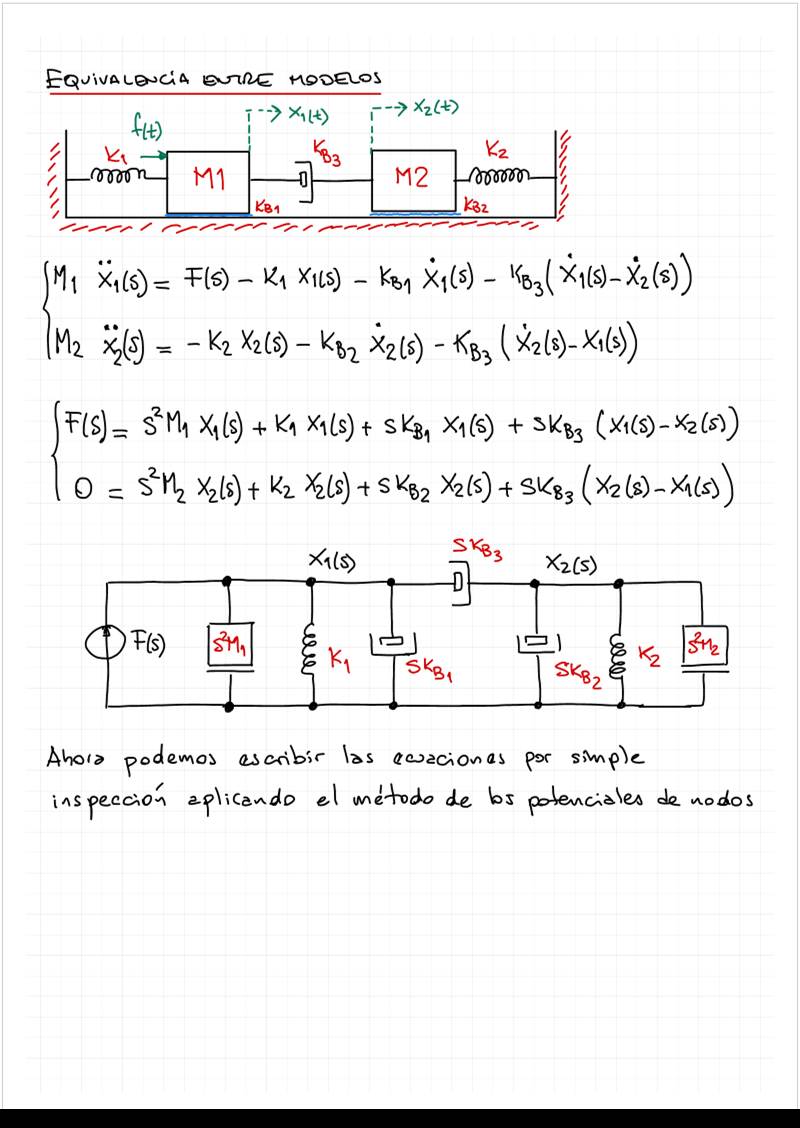 EQUIVALENCIA ENTRE MODELOS
f(t) X1(t) X2(t)
K1 M1 KB3 M2 K2
KB1 KB2
M1 Ẍ1(s) = F(s) - K1 X1(s) - KB1 Ẋ1(s) - KB3 (Ẋ1(s) - Ẋ2(s))
M2 Ẍ2(s) = - K2 X2(s) - KB2 Ẋ2(s) - KB3 (Ẋ2(s) - Ẋ1(s))
F(s) = S²M1 X1(s) + K1 X1(s) + SKB1 X1(s) + SKB3 (X1(s) - X2(s))
0 = S²M2 X2(s) + K2 X2(s) + SKB2 X2(s) + SKB3 (X2(s) - X1(s))
X1(s) SKB3 X2(s)
F(s) S²M1 K1 SKB1 SKB2 K2 S²M2
Ahora podemos escribir las ecuaciones por simple
inspección aplicando el método de los potenciales de nodos